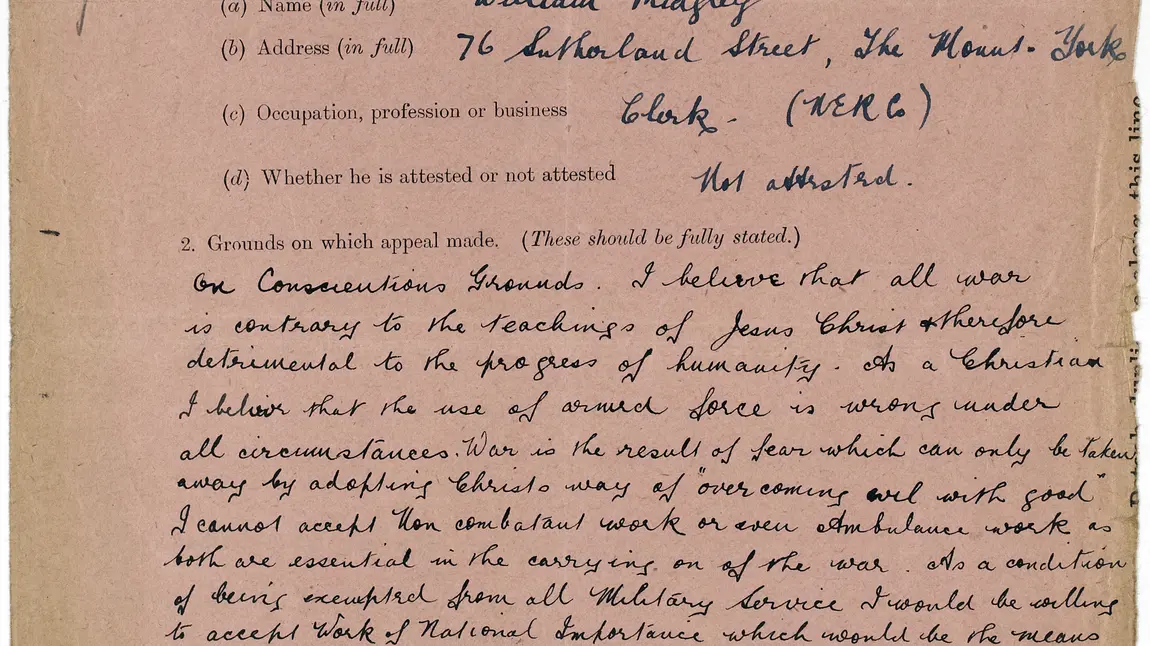 (a) Name (in full) William Midgley
(b) Address (in full) 76 Sutherland Street, The Mount - York
(c) Occupation, profession or business Clerk - (NER Co)
(d) Whether he is attested or not attested Not attested.
2. Grounds on which appeal made. (These should be fully stated.)
On Conscientious Grounds. I believe that all war
is contrary to the teachings of Jesus Christ & therefore
detrimental to the progress of humanity. As a Christian
I believe that the use of armed force is wrong under
all circumstances. War is the result of fear which can only be taken
away by adopting Christs way of "overcoming evil with good"
I cannot accept Non combatant work or even Ambulance work as
both are essential in the carrying on of the war. As a condition
of being exempted from all Military Service I would be willing
to accept Work of National Importance which would be the means
along this line